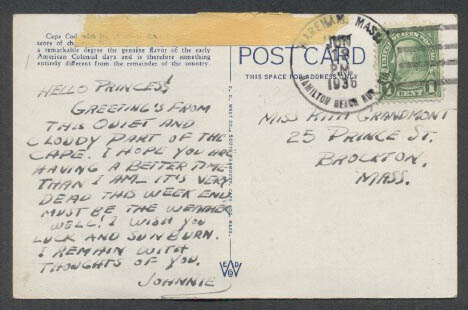 Cape Cod with
score of
a remarkable degree the genuine flavor of the early
American Colonial days and is therefore something
entirely different from the remainder of the country.
HELLO PRINCESS!
GREETING'S FROM
THIS QUIET AND
CLOUDY PART OF THE
CAPE. I HOPE YOU ARE
HAVING A BETTER TIME
THAN I AM. IT'S VERY
DEAD THIS WEEK END.
MUST BE THE WEATHER
WELL! I WISH YOU
LUCK AND SUNBURN.
I REMAIN WITH
THOUGHTS OF YOU.
JOHNNIE
POST CARD
THIS SPACE FOR ADDRESS ONLY
WAREHAM, MASS.
JUN
PM
1936
HAMILTON BEACH
UNITED STATES POSTAGE
1 CENT 1
MISS KITTI GRANDMONT
25 PRINCE ST.
BROCKTON,
MASS.